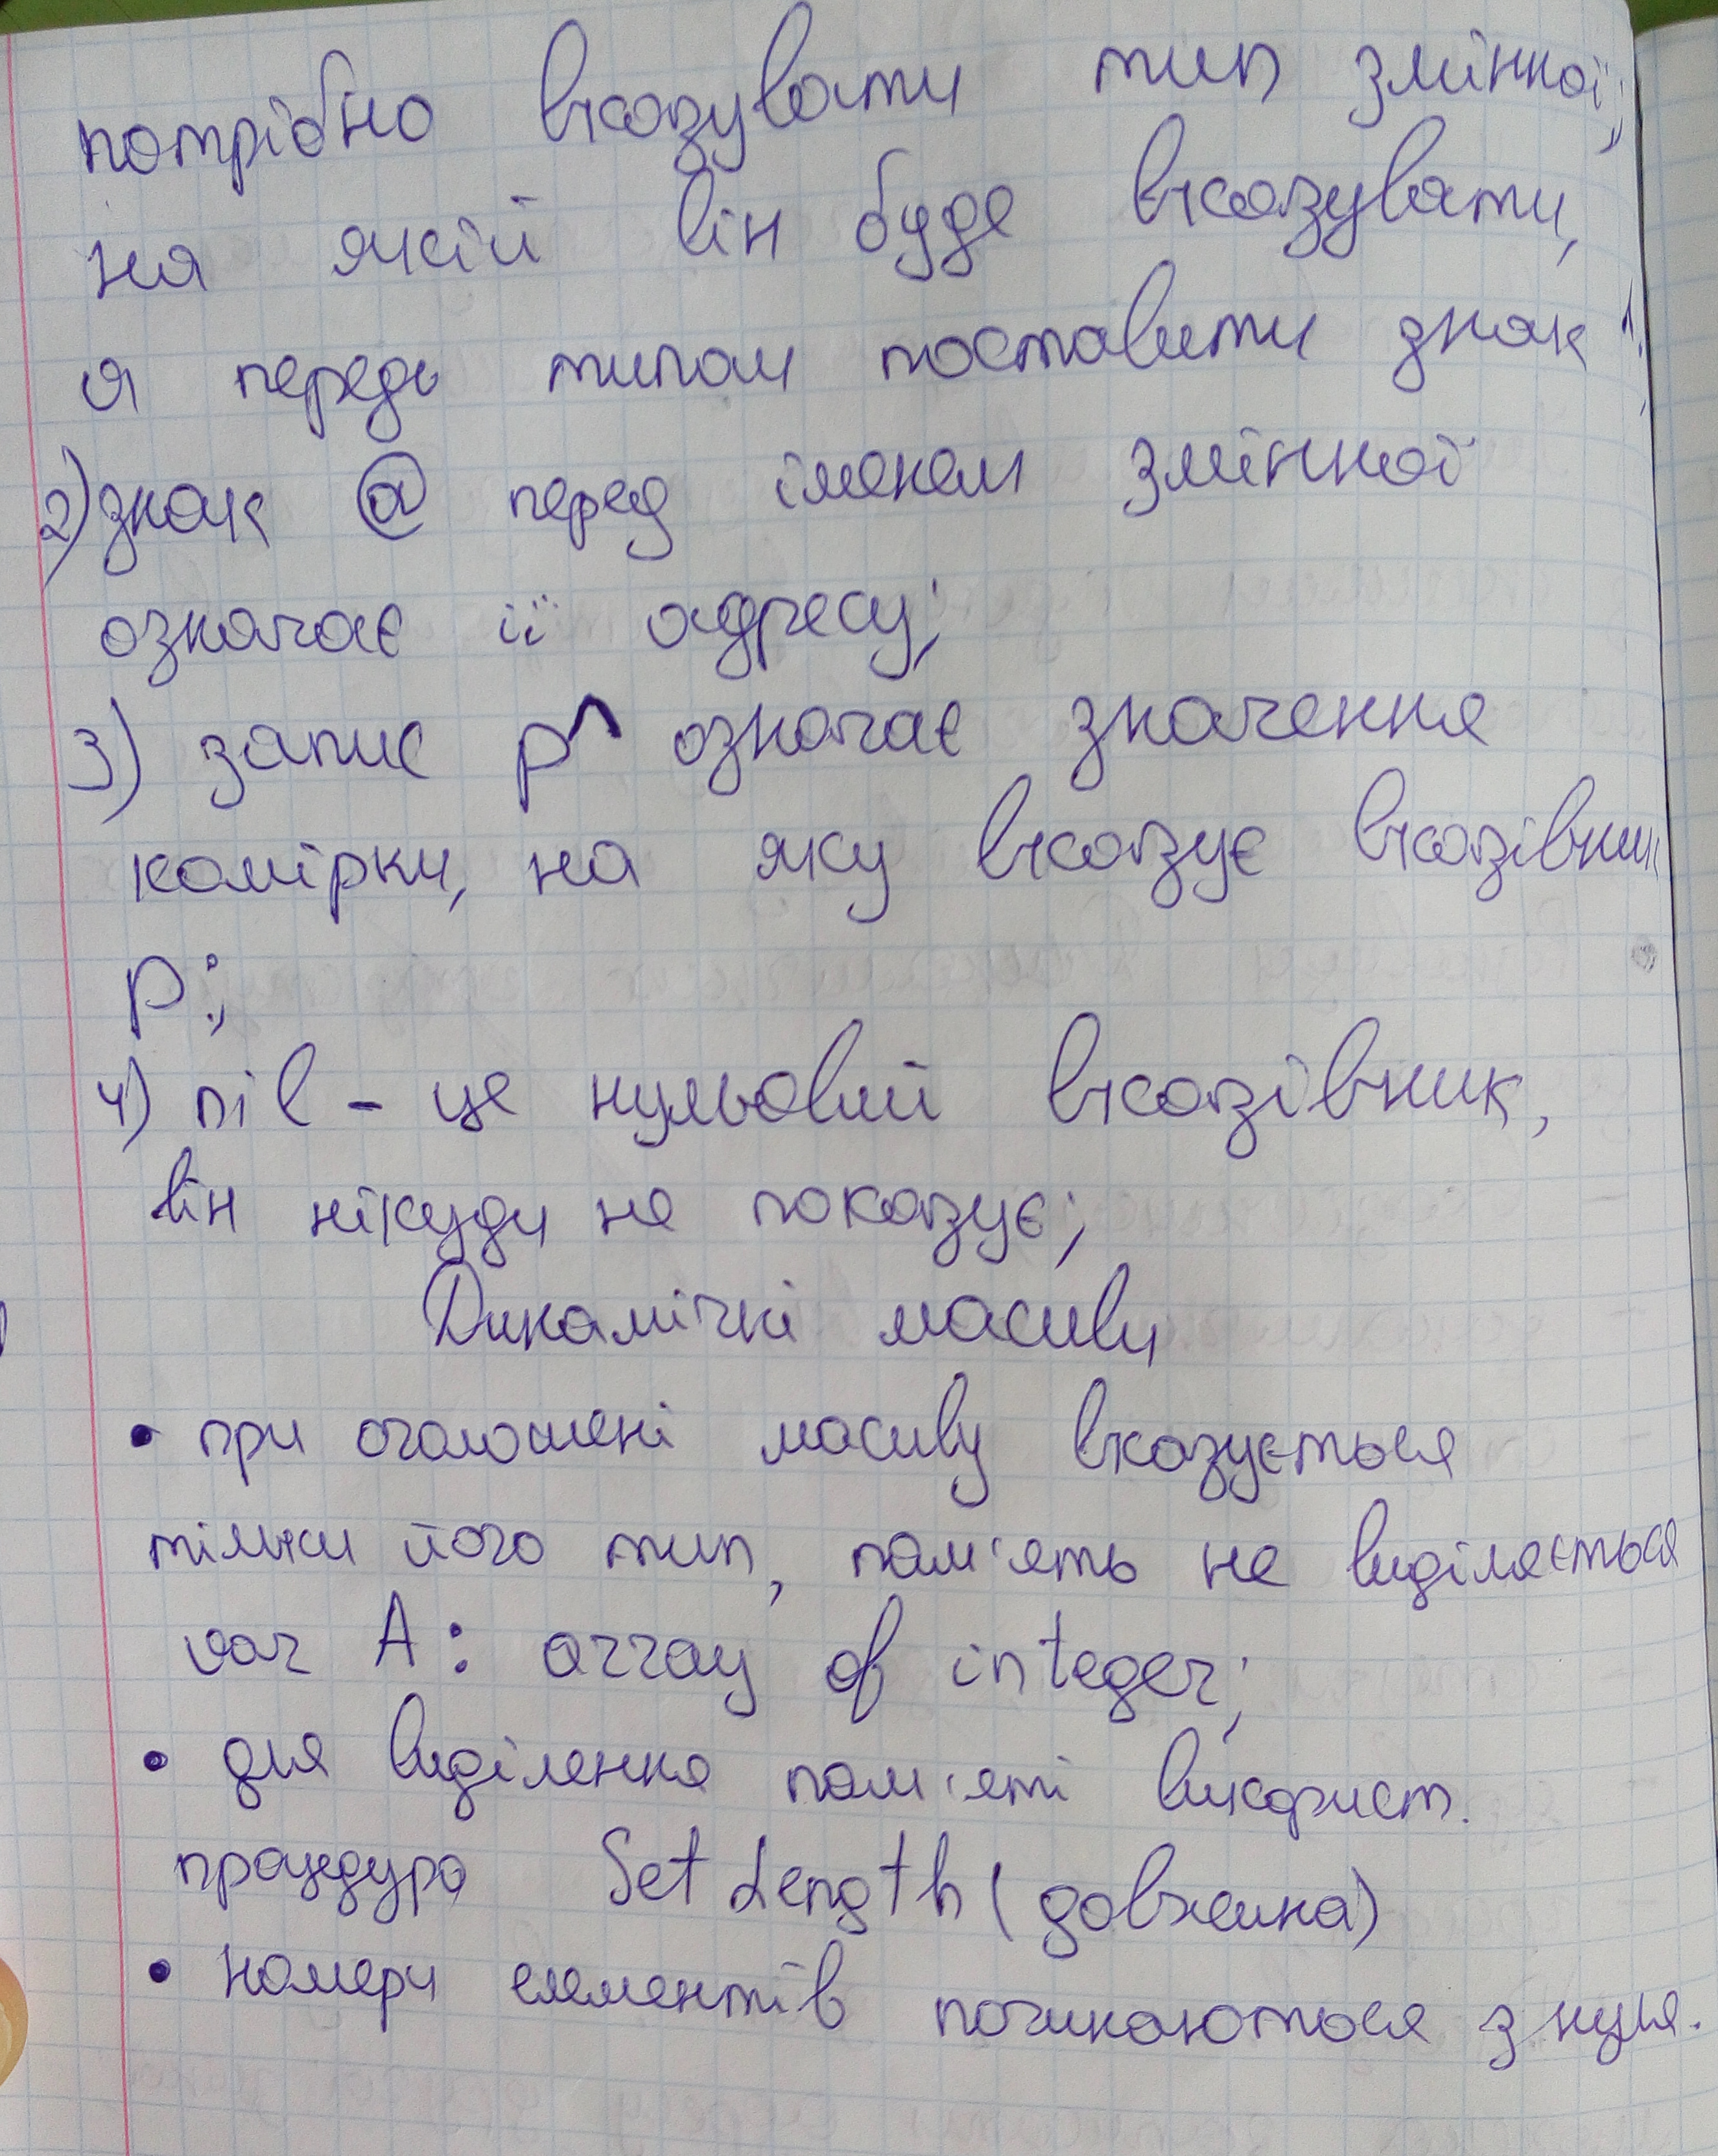 потрібно вказувати тип змінної,
на якій він буде вказувати,
а передь типом поставити знак ^;
2) знак @ перед іменем змінної
означає її адресу;
3) запис p^ означає значення
комірки, на яку вказує вказівник
p;
4) nil - це нульовий вказівник,
він нікуди не показує;
Динамічні масиви
• при оголошені масиву вказується
тільки його тип, пам'ять не виділяється
var A: array of integer;
• для виділення пам'яті використ.
процедура Set Length (довжина)
• номери елементів починаються з нуля.